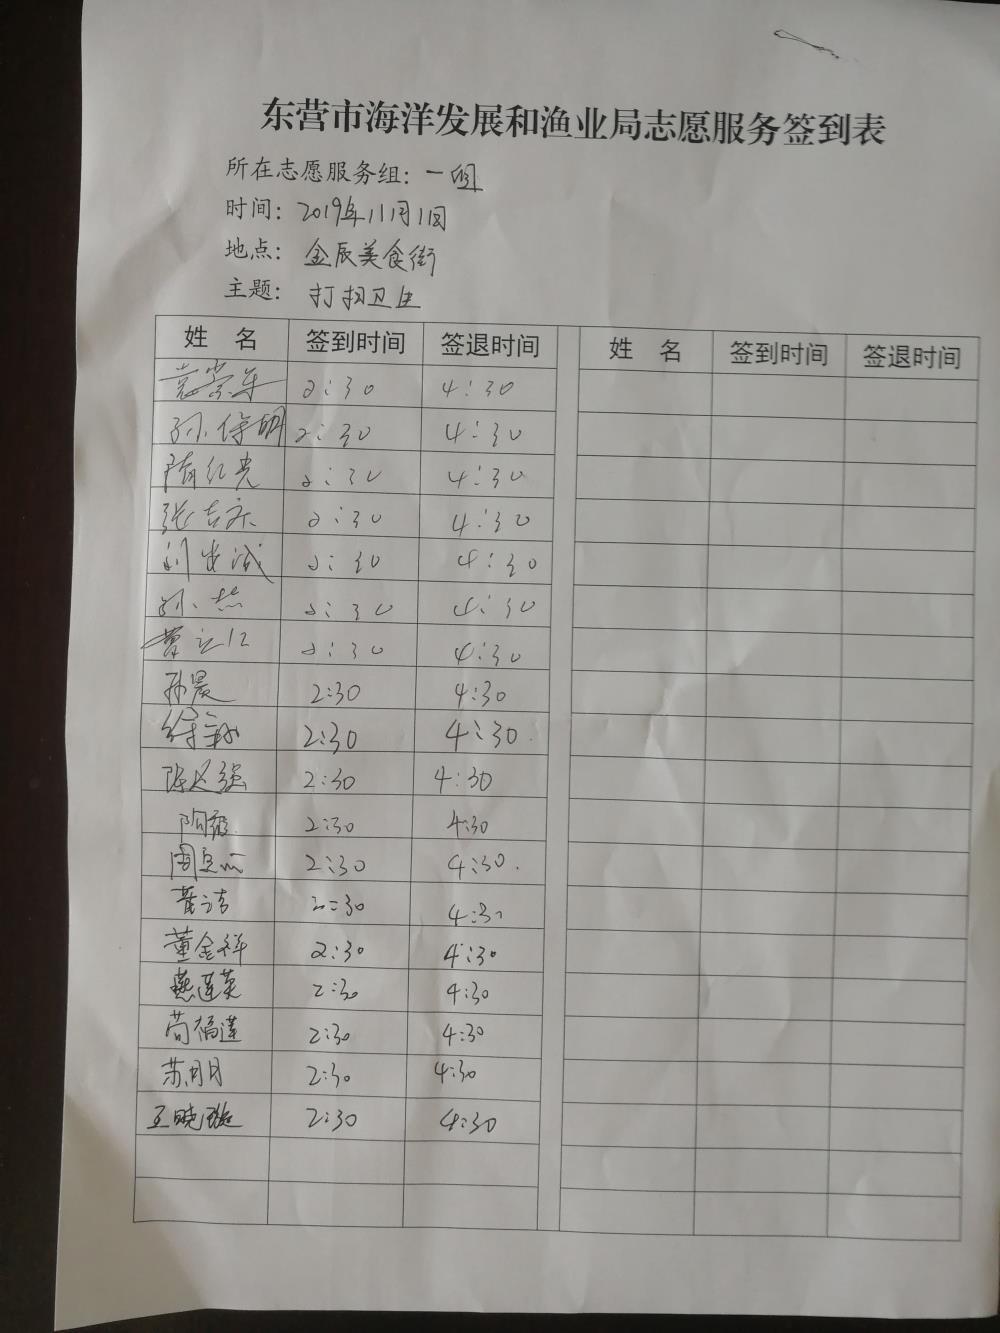 东营市海洋发展和渔业局志愿服务签到表
所在志愿服务组：一组
时间：2019年11月11日
地点：金辰美食街
主题：打扫卫生
姓 名 签到时间 签退时间 姓 名 签到时间 签退时间
2:30 4:30
孙保明 2:30 4:30
隋红光 2:30 4:30
张吉 2:30 4:30
刘 2:30 4:30
孙燕 2:30 4:30
曹立仁 2:30 4:30
孙晨 2:30 4:30
徐 2:30 4:30
陈 强 2:30 4:30
2:30 4:30
周 2:30 4:30
董洁 2:30 4:30
董金祥 2:30 4:30
燕莲英 2:30 4:30
苟福莲 2:30 4:30
苏月月 2:30 4:30
王晓 2:30 4:30